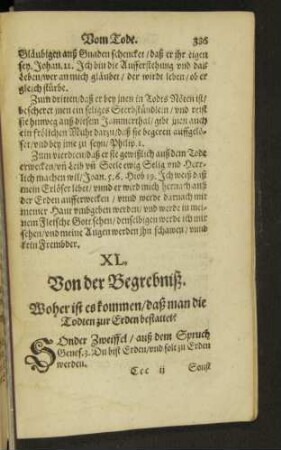 Vom Tode. 326
Gläubigen auß Gnaden schencket / daß er ihr eigen
sey. Johan. 11. Ich bin die Aufferstehung vnd das
Leben / wer an mich gläubet / der wirdt leben / ob er
gleich stürbe.
Zum dritten / daß er bey jnen in Todts Nöten ist /
bescheret jnen ein seliges Sterbstündlein / vnd reist
sie hinweg auß diesem Jammerthal / gibt jnen auch
ein frölichen Muht darzu / daß sie begeren auffgelö-
set / vnd bey jme zu seyn. Philip. 1.
Zum vierdten / daß er sie gewißlich auß dem Tode
erwecken / vñ Leib vñ Seele ewig Selig vnd Herr-
lich machen wil / Joan. 5. 6. Hiob 19. Ich weiß dz
mein Erlöser lebet / vnnd er wird mich hernach auß
der Erden aufferwecken / vnnd werde darnach mit
meiner Haut vmbgeben werden / vnd werde in mei-
nem Fleische Gott sehen / denselbigen werde ich mir
sehen / vnd meine Augen werden jhn schawen / vnnd
kein Frembder.
XL.
Von der Begrebniß.
Woher ist es kommen / daß man die
Todten zur Erden bestattet?
SOnder Zweiffel / auß dem Spruch
Genes. 3. Du bist Erden / vnd solt zu Erden
werden.
Ccc ij Sonst